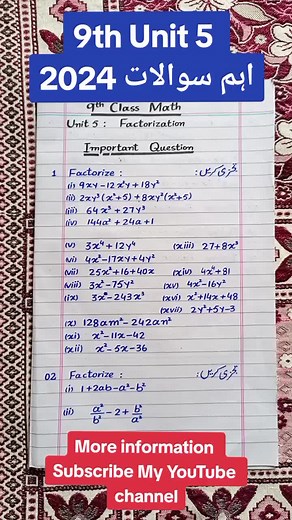 9th Unit 5
اہم سوالات 2024
9th Class Math
Unit 5 : Factorization
Important Question
1 Factorize : تجزی کریں:
(i) 9xy-12x²y+18y²
(ii) 2xy³(x²+5)+8xy²(x²+5)
(iii) 64x³+27y³
(iv) 144a²+24a+1
(v) 3x⁴+12y⁴ (xiii) 27+8x³
(vi) 4x²-17xy+4y²
(vii) 25x²+16+40x (xiv) 4x⁴+81
(viii) 3x²-75y² (xv) 4x²-16y²
(ix) 3x²-243x³ (xvi) x²+14x+48
(xvii) 2y²+5y-3
(x) 128am²-242an²
(xi) x²-11x-42
(xii) x²-5x-36
02 Factorize : تجزی کریں:
(i) 1+2ab-a²-b²
(ii) a²/b² - 2 + b²/a²
More information
Subscribe My YouTube
channel